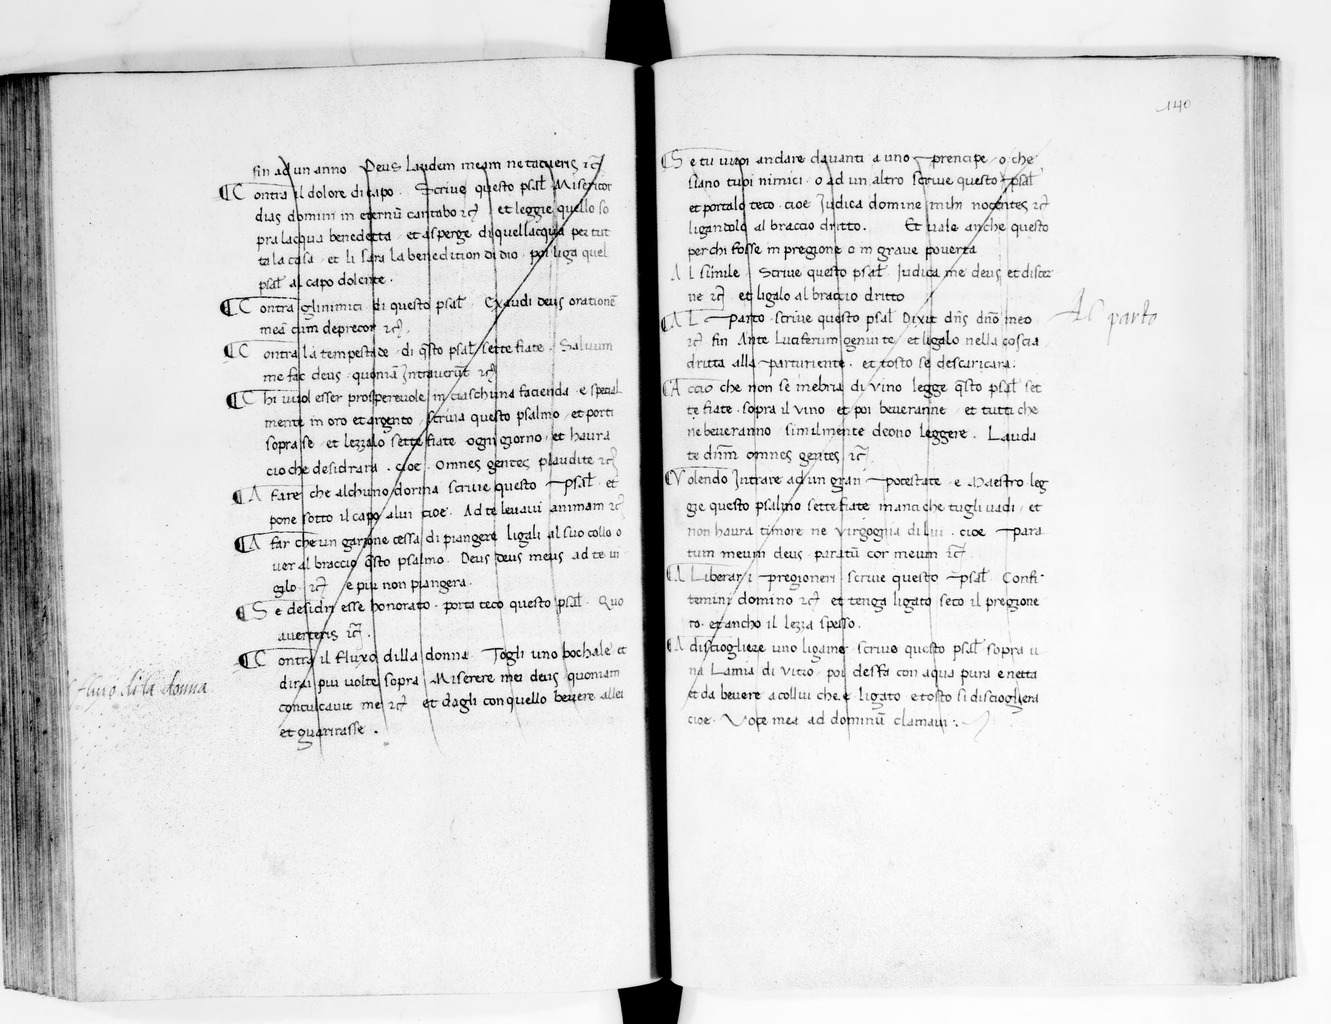 fin ad un anno Deus laudem meam ne tacueris ⁊c̃
¶ Contra il dolore di capo. Scrive questo psal̃ Misericor
dias domini in eternũ cantabo ⁊c̃ et leggie quello so
pra lacqua benedetta et asperge di quellacqua per tut
ta la casa et li sara la benedition di dio poi liga quel
psal̃ al capo dolente.
¶ Contra glinimici di questo psal̃ Exaudi deus orationẽ
meã cum deprecor ⁊c̃
¶ Contra la tempestade di q̃sto psal̃ sette fiate. Saluum
me fac deus quoniã Intraverũt ⁊c̃
¶ Chi vuol esser prosperevole in ciaschuna facienda e special
mente in oro et argento scrivia questo psalmo et porti
sopra se et lezzalo sette fiate ogni giorno et havra
cio che desidrara. cioe. Omnes gentes plaudite ⁊c̃
¶ A fare che alchuno dorma scrive questo psal̃ et
pone sotto il capo alui cioe. Ad te levavi animam ⁊c̃
¶ A far che un garzone cessa di piangere ligali al suo collo o
uer al braccio q̃sto psalmo. Deus deus meus ad te vi
gilo ⁊c̃ e piu non piangera.
¶ Se desidri esse honorato. porta teco questo psal̃. Quo
averteris ⁊c̃.
¶ Contra il fluxo dilla donna. Togli uno bochale et
dirai piu volte sopra Miserere mei deus quoniam
conculcavit me ⁊c̃ et dagli con quello bevere allei
et guarirasse.
fluxo di la donna
140
¶ Se tu vuoi andare davanti a uno prencipe o che
siano tuoi nimici o ad un altro scrive questo psal̃
et portalo teco cioe Judica domine mihi nocentes ⁊c̃
ligandolo al braccio dritto. Et vale anche questo
per chi fosse in pregione o in grave poverta
Al simile. Scrive questo psal̃ Judica me deus et discer
ne ⁊c̃ et ligalo al braccio dritto
¶ Al Parto scrive questo psal̃ Dixit dñs dño meo
⁊c̃ fin Ante Luciferum genui te et ligalo nella coscia
dritta alla parturiente et tosto se descaricara:
Al parto
¶ Accio che non se inebria di vino legge q̃sto psal̃ set
te fiate sopra il vino et poi beveranne et tutti che
ne beveranno similmente deono leggere. Lauda
te dñm omnes gentes ⁊c̃
¶ Volendo Intrare ad un gran potestate e Maestro leg
ge questo psalmo sette fiate inanci che tu gli vadi et
non havra timore ne virgogna di lui. cioe para
tum meum deus paratũ cor meum ⁊c̃
¶ A Liberar i pregioneri scrive questo psal̃ Confi-
temini domino ⁊c̃ et tenga ligato seco il pregione
to. et ancho il lezza spesso.
¶ A disciogliere uno ligame scrive questo psal̃ sopra u
na Lamia di vitro poi desfa con aqua pura e netta
et da bevere a collui che e ligato e tosto si disciogliera
cioe. Voce mea ad dominũ clamavi :.